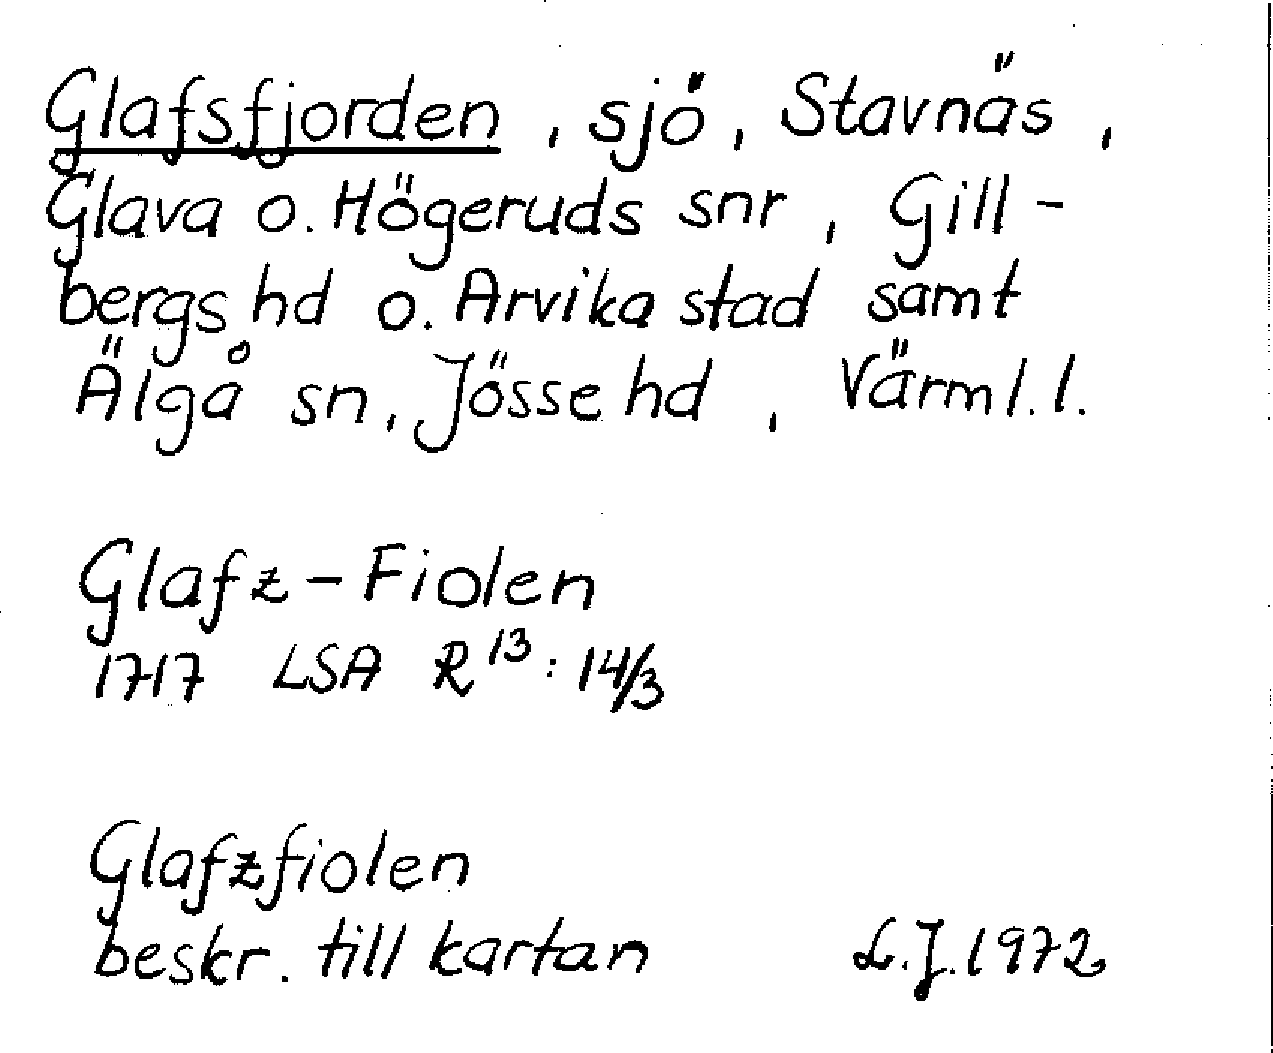 Glafsfjorden, sjö, Stavnäs,
Glava o. Högeruds snr, Gill-
bergs hd o. Arvika stad samt
Älgå sn, Jösse hd, Värml. l.
Glafz-Fiolen
1717 LSA R 13: 14/3
Glafzfiolen
beskr. till kartan L.J. 1972